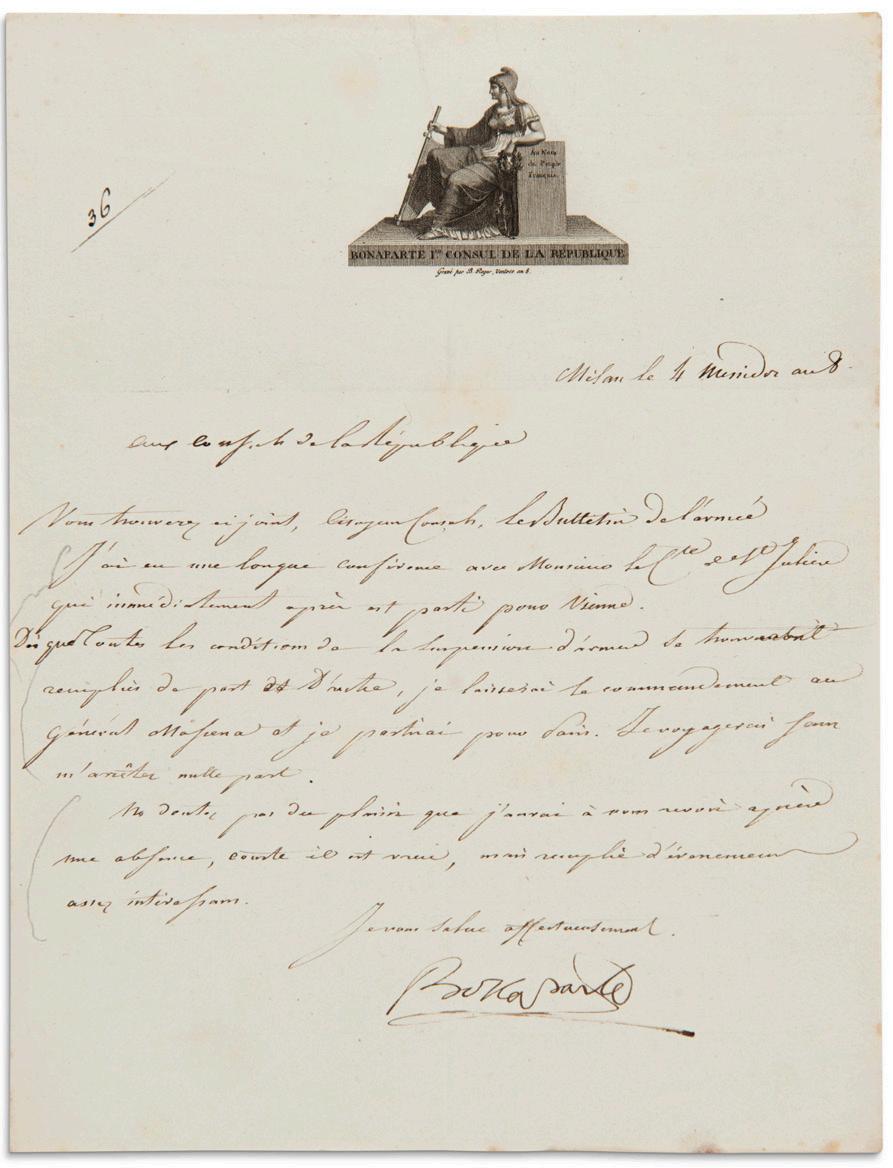 36
Au Nom
du Peuple
Français.
BONAPARTE Ier CONSUL DE LA RÉPUBLIQUE
Gravé par B. Roger, Ventose an 8.
Milan le 4 Messidor an 8.
aux consuls de la République
Vous trouverez ci joint, Citoyens Consuls, le Bulletin de l'armée
J'ai eu une longue conférence avec Monsieur le Cte de St Julien
qui immédiatement après est parti pour Vienne.
Dès que Toutes les conditions de la suspension d'armes se
remplies de part et D'autre, je laisserai le commandement au
général Massena et je partirai pour Paris. Je voyagerai sans
m'arrêter nulle part.
Ne doutez pas du plaisir que j'aurai à vous revoir après
une absence, courte il est vrai, mais remplie d'évenemens
assez intéressans.
Je vous salue affectueusement.
Bonaparte